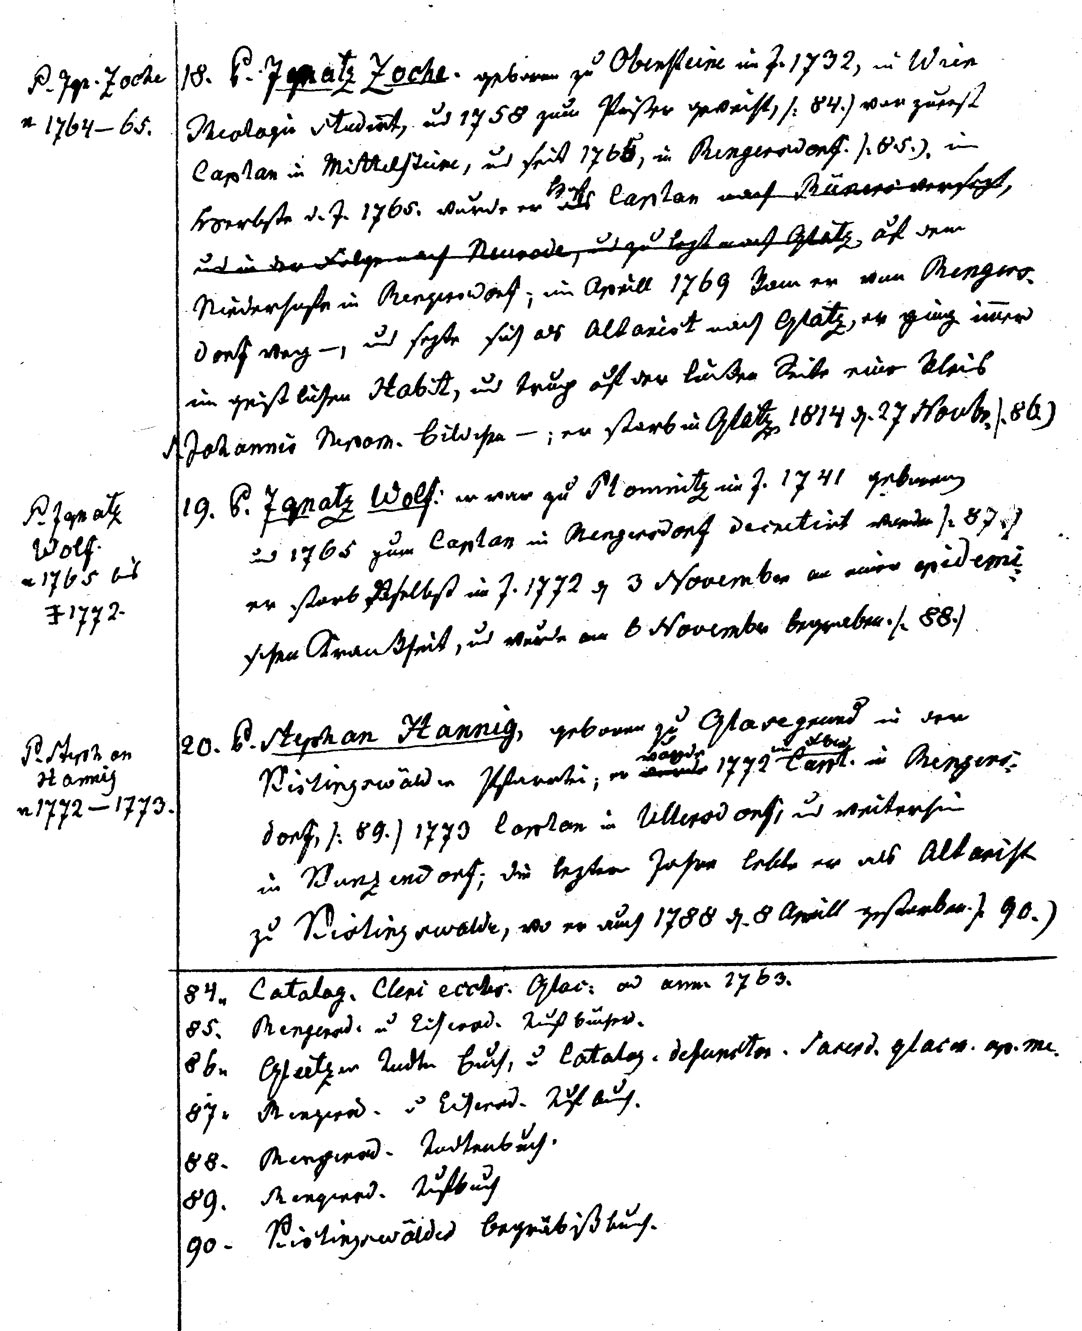 P. Ign. Zoche
v 1764–65.
18. P. Ignatz Zoche. geboren zu Obersteine im J. 1732, in Wien
Theologie studirt, und 1758 zum Priester geweiht, /: 84.) war zuerst
Caplan in Mittelsteine, und seit 1765, in Rengersdorf. /: 85.), im
Herbste d. J. 1765. wurde er Caplan nach Rückers versezt,
und in der Folge nach Neurode, und zu lezt nach Glatz, auf dem
Niederhofe in Rengersdorf; im Aprill 1769 kam er von Rengers-
dorf weg –, und sezte sich als Altarist nach Glatz, er ging immer
im geistlichen Habit, und trug auf der linken Seite ein
S. Johannis Nepom. Bildchen –; er starb in Glatz 1814 d. 27 Novbr. /: 86.)
P. Ignatz
Wolf.
v 1765 bis
1772.
19. P. Ignatz Wolf: er war zu Plomnitz im J. 1741 geboren
und 1765 zum Caplan in Rengersdorf decretirt worden /: 87.)
er starb daselbst im J. 1772 d. 3 November an einer epidemi-
schen Krankheit, und wurde am 6 November begraben. /: 88.)
P. Stephan
Hannig
v 1772–1773.
20. P. Stephan Hannig, geboren zu Glasegrund in der
Kislingswälder Pfarrtei; er wurde 1772 Capl. in Rengers-
dorf, /: 89.) 1773 Caplan in Ullersdorf, und weiterhin
in Kunzendorf; die lezten Jahre lebte er als Altarist
zu Kislingswalde, wo er auch 1788 d. 8 Aprill gestorben. /: 90.)
84. Catalog. Cleri eccles. Glac: ad ann. 1763.
85. Rengersd. u Eisersd. Taufbücher.
86. Glatzer Todten Buch, u Catalog. defunctor. Sacerd. glacen. ap. me.
87. Rengersd. u Eisersd. Taufbuch.
88. Rengersd. Todtenbuch.
89. Rengersd. Taufbuch
90. Kislingswälder Begräbißbuch.